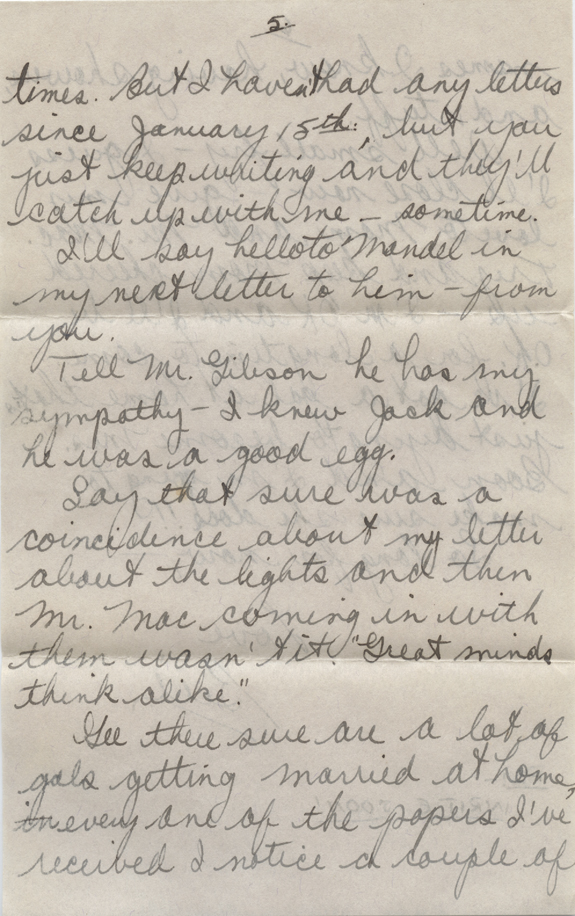 5.
times. But I haven't had any letters
since January 15th, but you
just keep writing and they'll
catch up with me – sometime.
I'll say hello to Mandel in
my next letter to him – from
you.
Tell Mr. Gibson he has my
sympathy – I knew Jack and
he was a good egg.
Say that sure was a
coincidence about my letter
about the lights and then
Mr. Mac coming in with
them wasn't it. "Great minds
think alike."
Gee there sure are a lot of
gals getting married at home,
in every one of the papers I've
received I notice a couple of